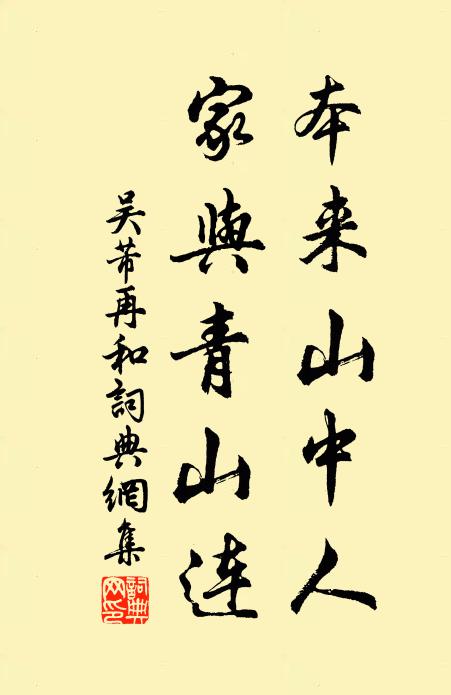 本来山中人
家與青山連
吴芾再和詞典網集
詞典網印